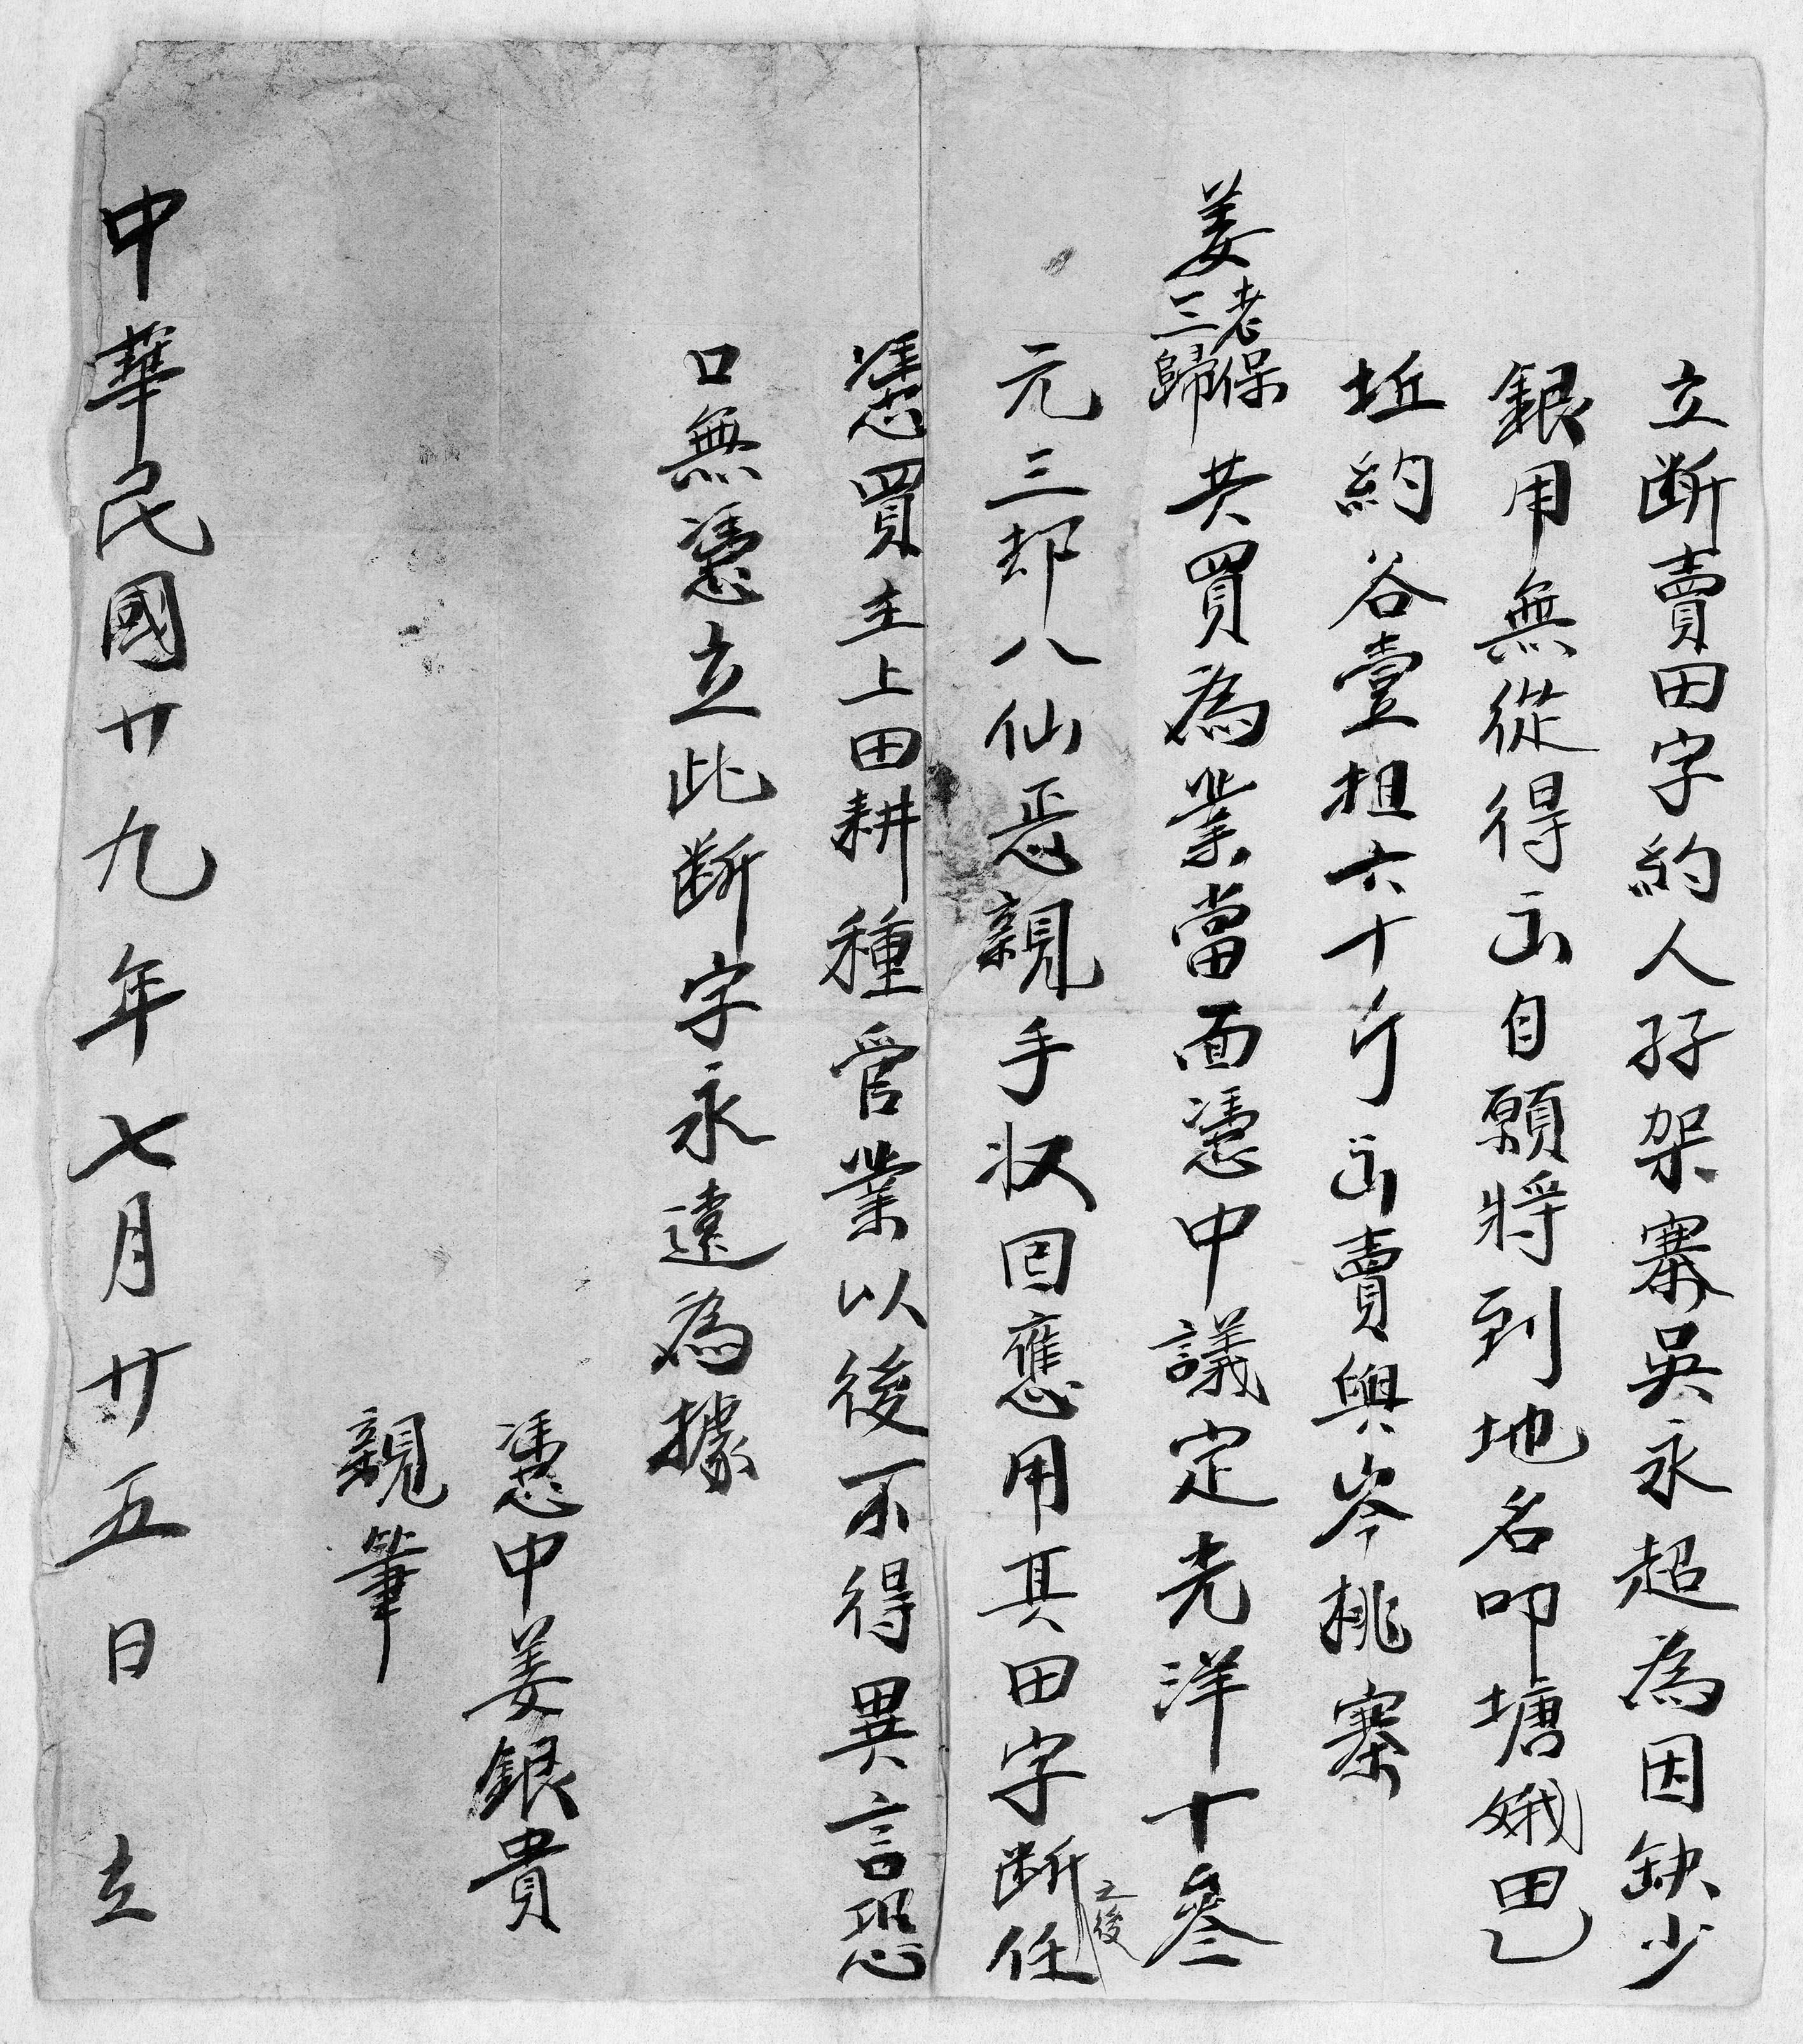 立断賣田字約人孖架寨吳永超為因缺少
銀用無從得出自願將到地名叩塘娥田乚
坵約谷壹担六十斤出賣與岑桃寨
姜老保三歸共買為業當面憑中議定光洋十叁
元三却八仙忢親手收囘應用其田字断之後任
憑買主上田耕種管業以後不得異言恐
口無憑立此断字永遠為據
憑中姜銀貴
親筆
中華民國廿九年七月廿五日立